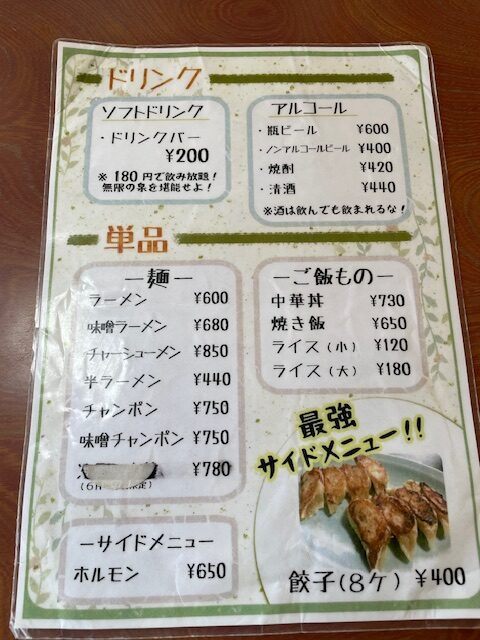 ドリンク
ソフトドリンク
・ドリンクバー
¥200
※180円で飲み放題!
無限の泉を堪能せよ!
アルコール
・瓶ビール ¥600
・ノンアルコールビール ¥400
・焼酎 ¥420
・清酒 ¥440
※酒は飲んでも飲まれるな!
単品
ー麺ー
ラーメン ¥600
味噌ラーメン ¥680
チャーシューメン ¥850
半ラーメン ¥440
チャンポン ¥750
味噌チャンポン ¥750
¥780
ーご飯ものー
中華丼 ¥730
焼き飯 ¥650
ライス(小) ¥120
ライス(大) ¥180
ーサイドメニューー
ホルモン ¥650
最強
サイドメニュー!!
餃子(8ケ) ¥400